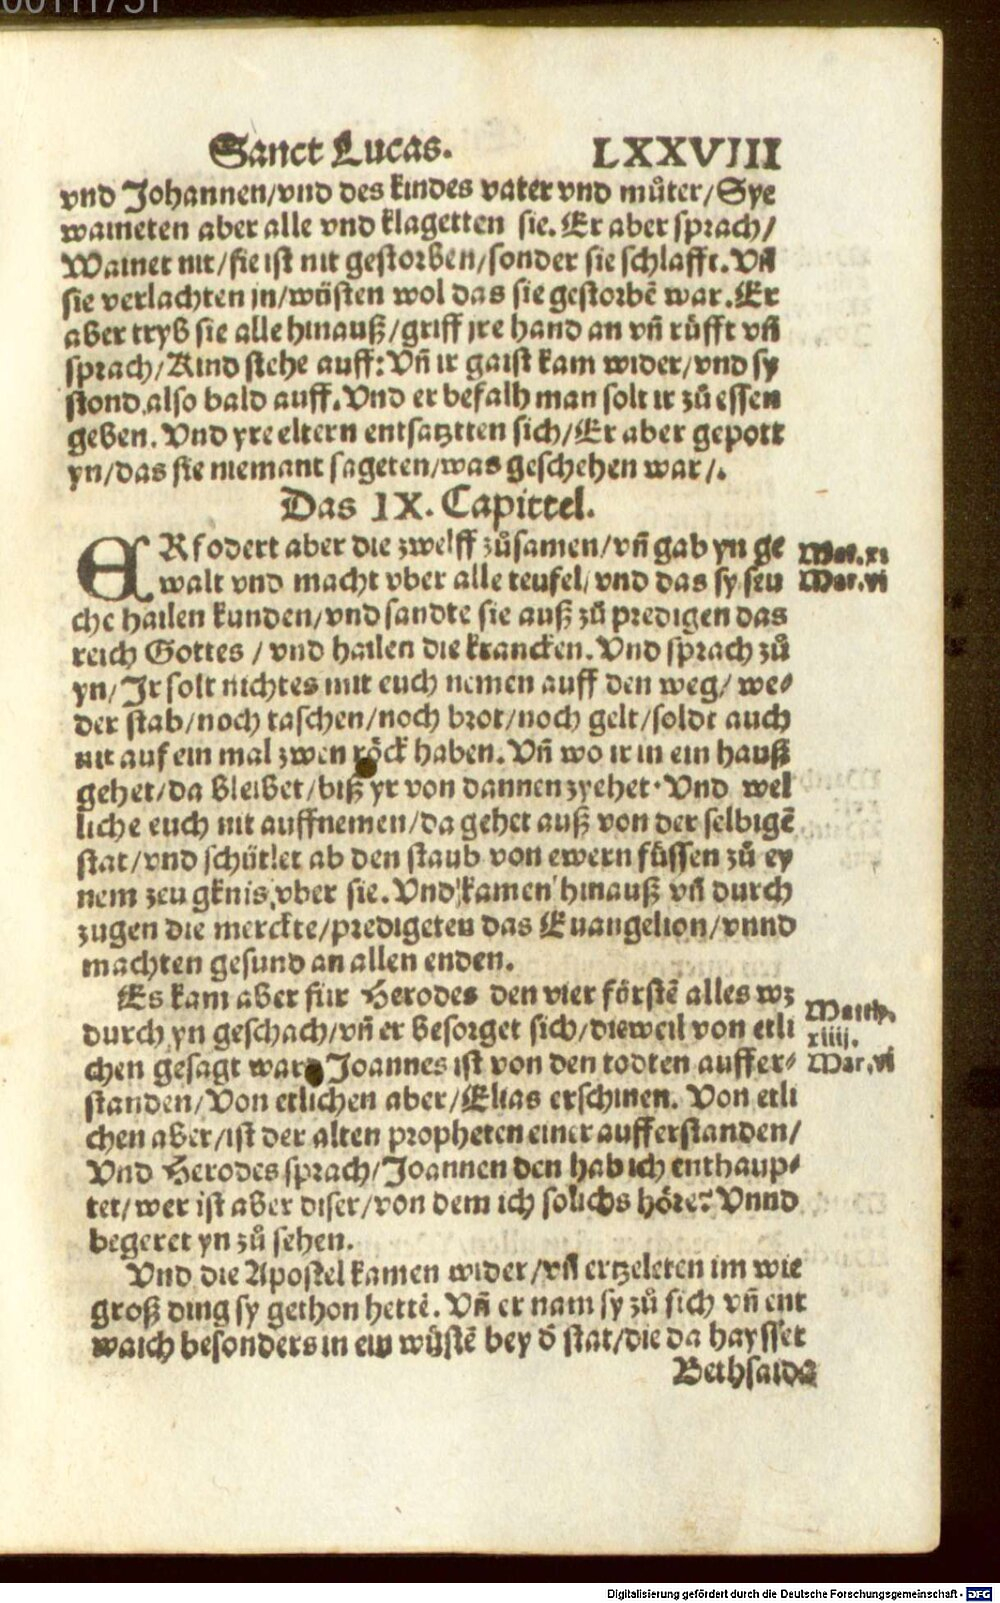 00111731
Sanct Lucas. LXXVIII
vnd Johannen/vnd des kindes vater vnd můter/Sye
waineten aber alle vnd klagetten sie. Er aber sprach/
Wainet nit/sie ist nit gestorben/sonder sie schlafft. Vñ
sie verlachten jn/wůsten wol das sie gestorbē war. Er
aber tryb sie alle hinauß/griff jre hand an vñ růfft vñ
sprach/Kind stehe auff: Vñ ir gaist kam wider/vnd sy
stond also bald auff. Vnd er befalh man solt ir zů essen
geben. Vnd yre eltern entsatztten sich/Er aber gepott
yn/das sie niemant sageten/was geschehen war/.
Das IX. Capittel.
ERfodert aber die zwelff zůsamen/vñ gab yn ge
walt vnd macht vber alle teufel/vnd das sy seu
che hailen kunden/vnd sandte sie auß zů predigen das
reich Gottes/vnd hailen die krancken. Vnd sprach zů
yn/Ir solt nichtes mit euch nemen auff den weg/we⸗
der stab/noch taschen/noch brot/noch gelt/soldt auch
nit auf ein mal zwen röck haben. Vñ wo ir in ein hauß
gehet/da bleibet/biß yr von dannen zyehet. Vnd wel
liche euch nit auffnemen/da gehet auß von der selbigē
stat/vnd schütlet ab den staub von ewern füssen zů ey
nem zeugknis vber sie. Vnd kamen hinauß vñ durch
zugen die merckte/predigeten das Euangelion/vnnd
machten gesund an allen enden.
Es kam aber für Herodes den vier förstē alles wz
durch yn geschach/vñ er besorget sich/dieweil von etli
chen gesagt ward Joannes ist von den todten auffer⸗
standen/Von etlichen aber/Elias erschinen. Von etli
chen aber/ist der alten propheten einer aufferstanden/
Vnd Herodes sprach/Joannen den hab ich enthaup⸗
tet/wer ist aber diser/von dem ich solichs höre? Vnnd
begeret yn zů sehen.
Vnd die Apostel kamen wider/vñ ertzeleten im wie
groß ding sy gethon hettē. Vñ er nam sy zů sich vñ ent
waich besonders in ein wůstē bey d̄ stat/die da haysset
Bethsaida
Mat.xi
Mar.vi
Matth.
xiiij.
Mar.vi
Digitalisierung gefördert durch die Deutsche Forschungsgemeinschaft - DFG